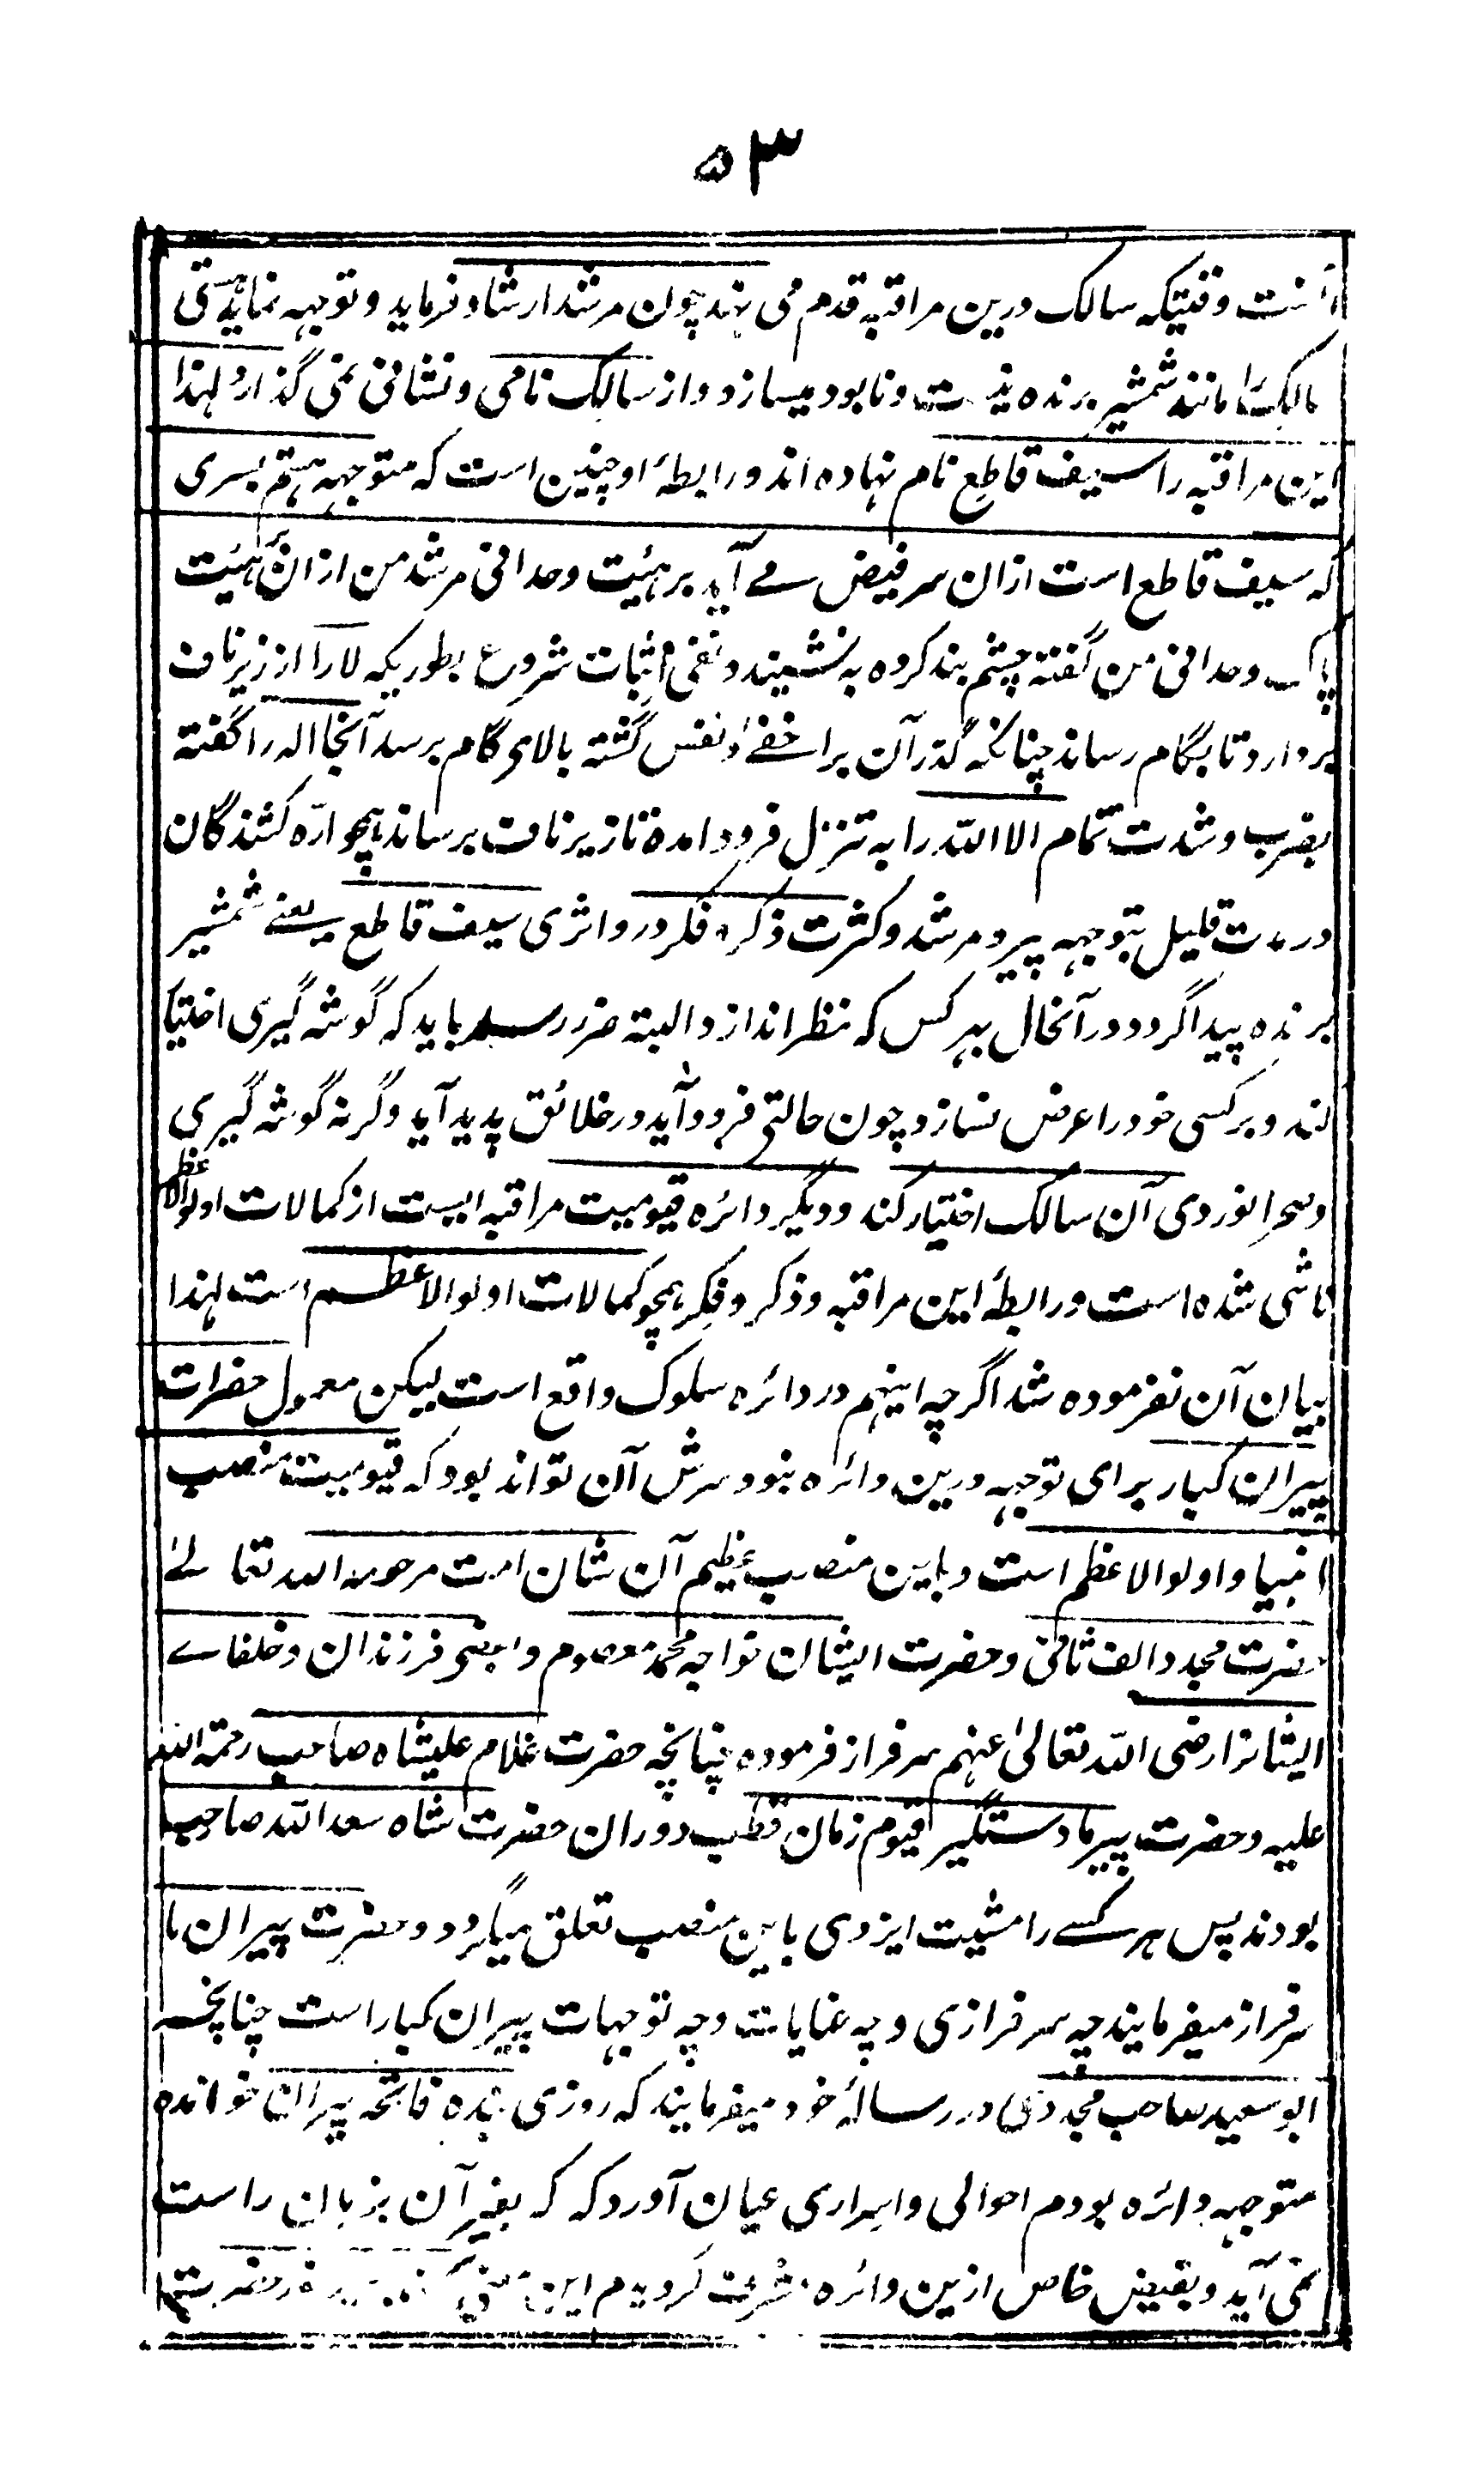 ۵۳
وقتیکه سالک درین مراقبه قدم می نهد چون مرشد ارشاد فرماید و توجهه نماید هستی
سالک را مانند شمشیر برنده نیست و نابود میسازد و از سالک نامی و نشانی نمی گذارد لهذا
این مراقبه را سیف قاطع نام نهاده اند و رابطهٔ او چنین است که متوجهه هستم بسری
که سیف قاطع است ازان سر فیض مے آید بر هیئت وحدانی مرشد من ازان هیئت
پاک وحدانی من گفته چشم بند کرده به نشیند و نفی و اثبات شروع بطوریکه لا را از زیر ناف
بردارد تا بگام رساند چنانکه گذر آن بر اخفےٰ و نفس گشته بالای گام برسد آنجا اله را گفته
بضرب و شدت تمام الا الله را به تنزل فرود آمده تا زیر ناف برساند همچو ارّه کشندگان
در مدت قلیل بتوجهه پیر و مرشد و کثرت ذکر و فکر درو اثری سیف قاطع یعنے شمشیر
برنده پیدا گردد و درآنحال بهر کس که نظر اندازد البته ضرر رسد باید که گوشه گیری اختیا
کند و بر کسی خود را عرض نسازد و چون حالتی فرود آید در خلائق پدید آید وگرنه گوشه گیری
و صحرا نوردی آن سالک اختیار کند و دیگر دائره قیومیت مراقبه ایست از کمالات اولوالاعظم
ناشی شده است و رابطهٔ این مراقبه و ذکر و فکر همچو کمالات اولوالاعظم است لهذا
بیان آن نفرموده شد اگرچه اینهم در دائره سلوک واقع است لیکن معمول حضرات
پیران کبار برای توجهه درین دائره نبود سرش آن تواند بود که قیومیت منصب
انبیا و اولوالاعظم است و باین منصب عظیم آن شان امت مرحومه الله تعالےٰ
حضرت مجدد الف ثانی و حضرت ایشان خواجه محمد معصوم و بعضی فرزندان و خلفاے
ایشانرا رضی الله تعالیٰ عنهم سرفراز فرموده چنانچه حضرت غلام علیشاه صاحب رحمة الله
علیه و حضرت پیر ما دستگیر قیوم زمان قطب دوران حضرت شاه سعد الله صاحب
بودند پس هر کسے را مشیت ایزدی باین منصب تعلق میگیرد و حضرت پیران ما
سرفراز میفرمایند چه سرفرازی و چه عنایات و چه توجهات پیران کبار است چنانچه
ابو سعید صاحب مجددی در رسالهٔ خود میفرمایند که روزی بنده فاتحه پیران خوانده
متوجهه دائره بودم احوالی و اسراری عیان آورد که که بغیر آن بزبان راست
نمی آید و بفیض خاص ازین دائره مشرف گردیدم این